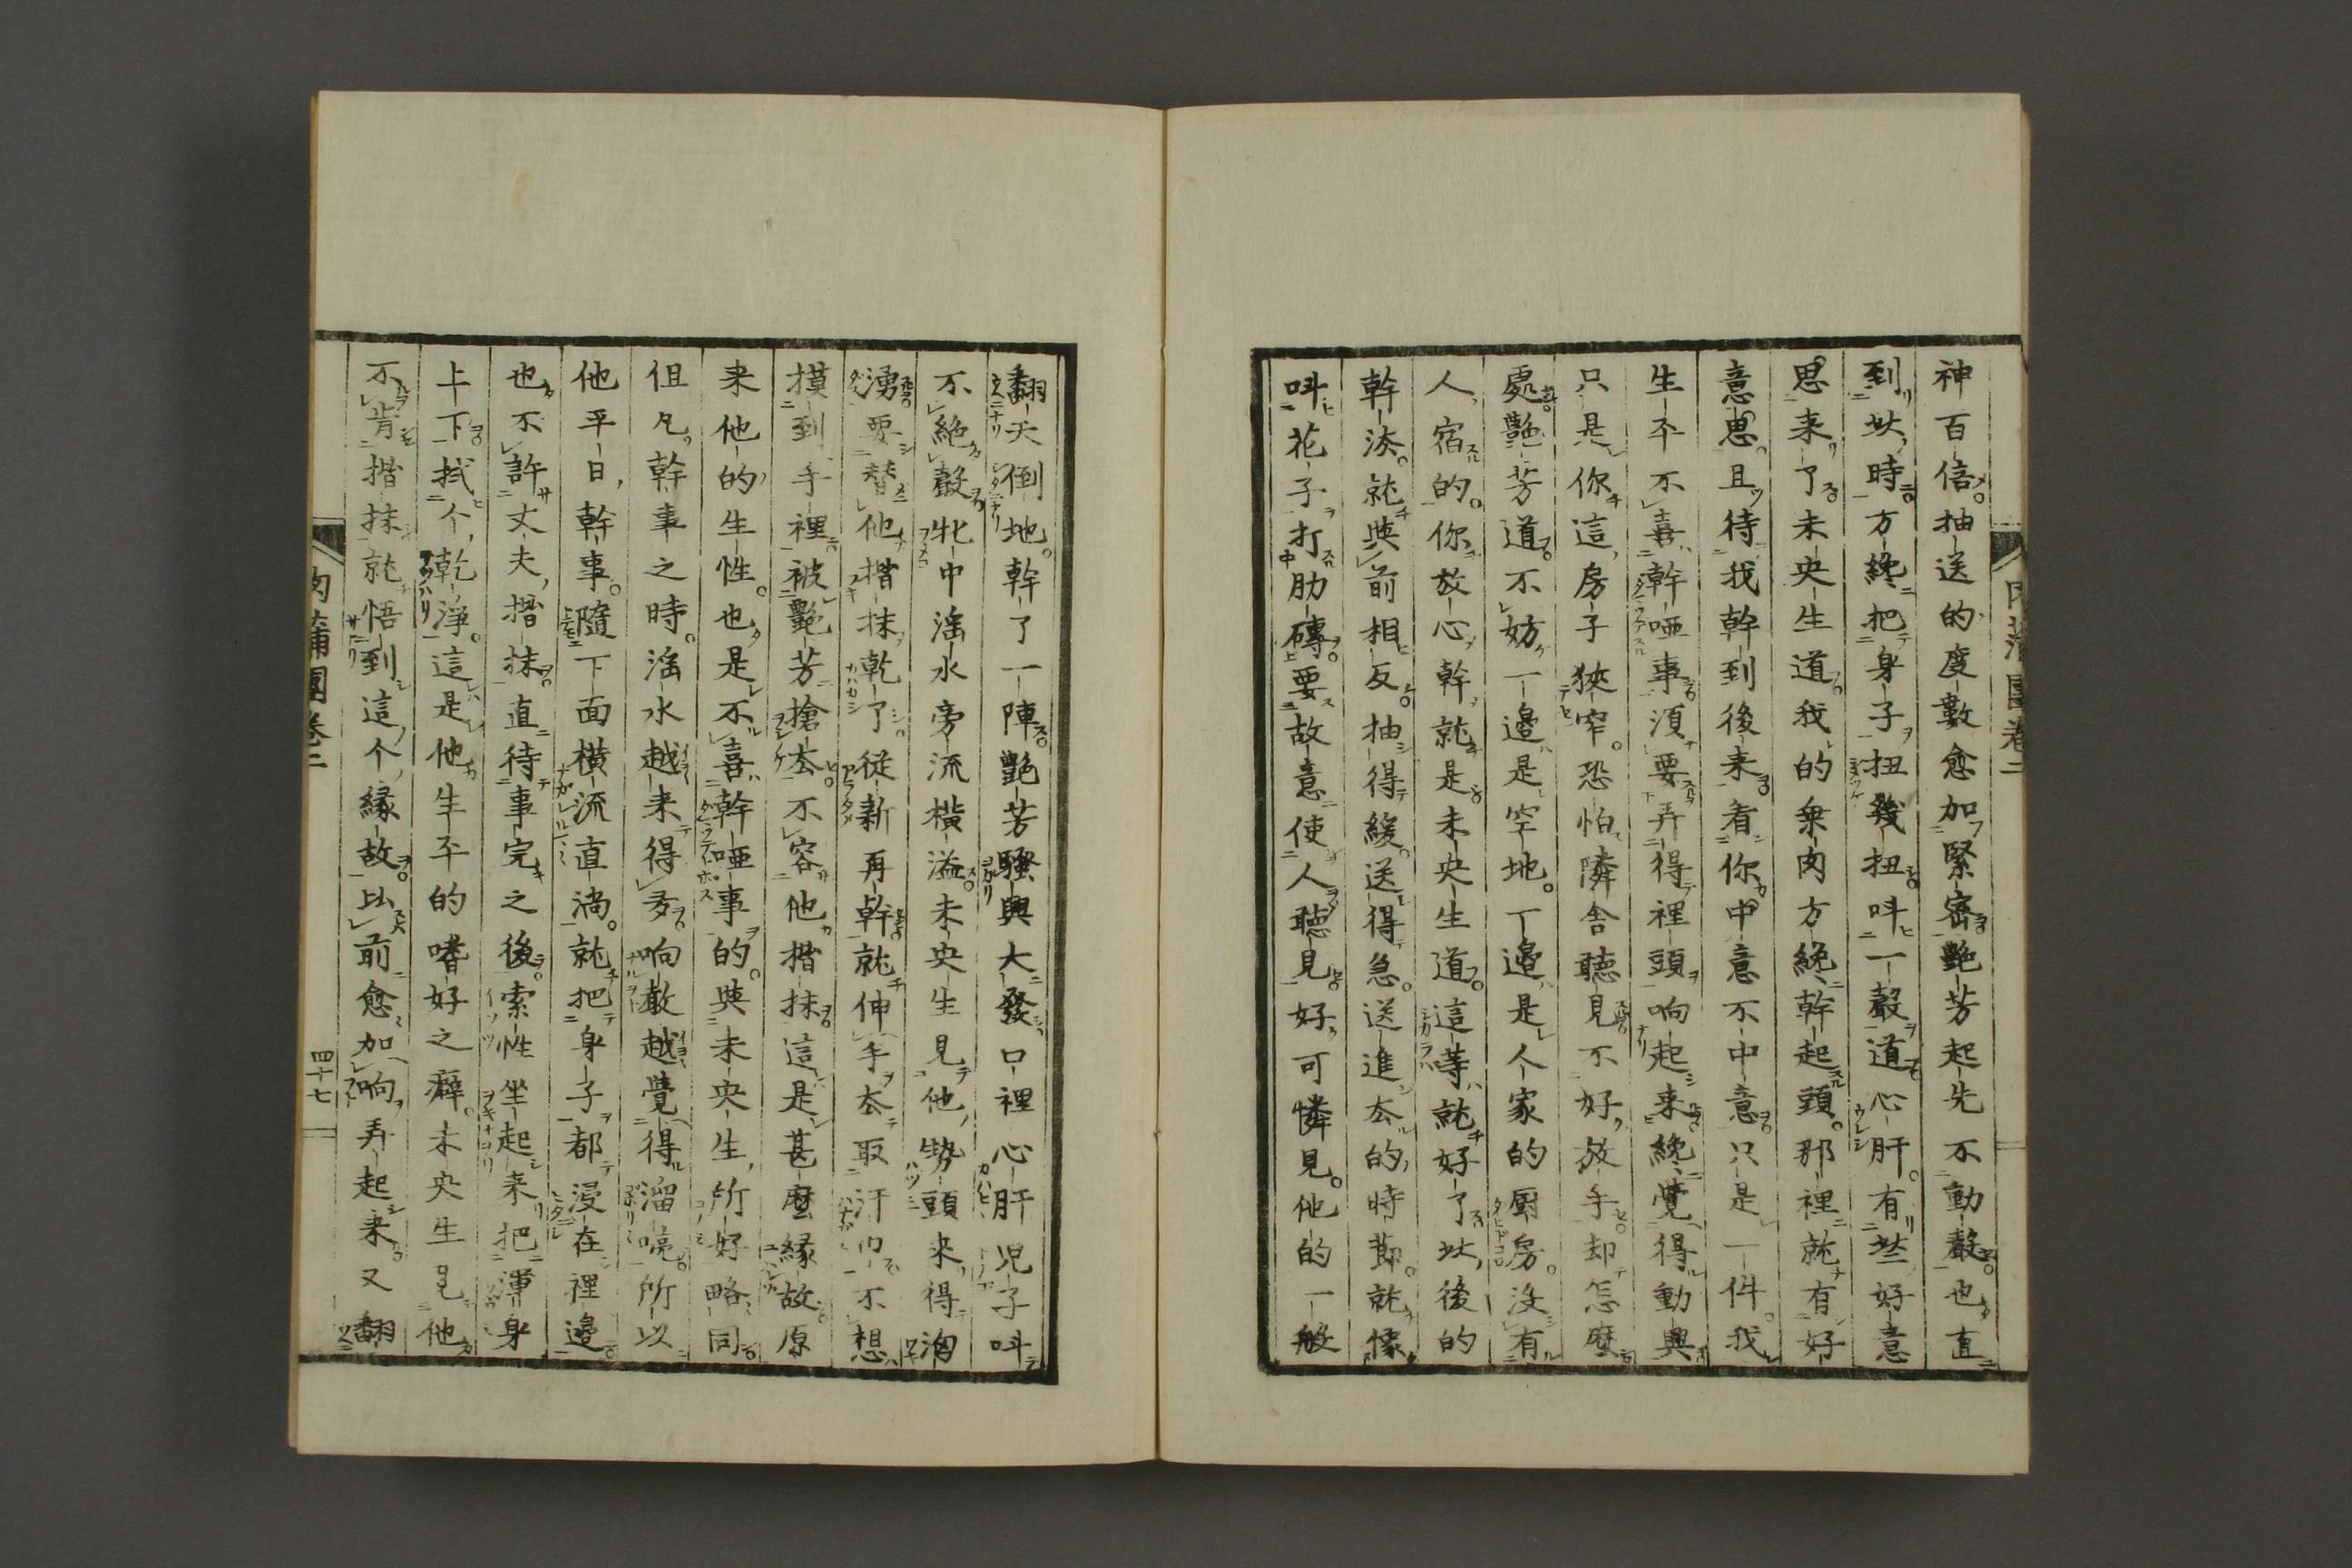 神百倍抽送的度數愈加緊密艷芳起先不動聲也直
到此時方纔把身子扭幾扭叫一聲道心肝有些好意
思来了未央生道我的乖肉方纔幹起頭那裡就有好
意思且待我幹到後来看你中意不中意只是一件我
生平不喜幹啞事須要弄得裡頭响起来纔覺得動興
只是你這房子狹窄恐怕隣舎聽見不好放手却怎麼
處艷芳道不妨一邉是空地一邉是人家的厨房没有
人宿的你放心幹就是未央生道這等就好了此後的
幹法就與前相反抽得緩送得急送進去的時節就像
叫花子打肋磚要故意使人聽見好可憐見他的一般
翻天倒地幹了一陣艷芳騷興大發口裡心肝児子叫
不絶聲牝中滛水旁流横溢未央生見他勢頭来得洶
湧要替他揩抹乾了從新再幹就伸手去取汗巾不想
摸到手裡被艷芳搶去不容他揩抹這是甚麼縁故原
来他的生性也是不喜幹啞事的與未央生所好略同
但凡幹事之時滛水越来得多响聲越覺得溜喨所以
他平日幹事隨下面横流直淌就把身子都浸在裡邉
也不許丈夫揩抹直待事完之後索性坐起来把渾身
上下拭个乾淨這是他生平的嗜好之癖未央生見他
不肯揩抹就悟到這个縁故比前愈加响弄起来又翻
肉蒲團卷二
四十七